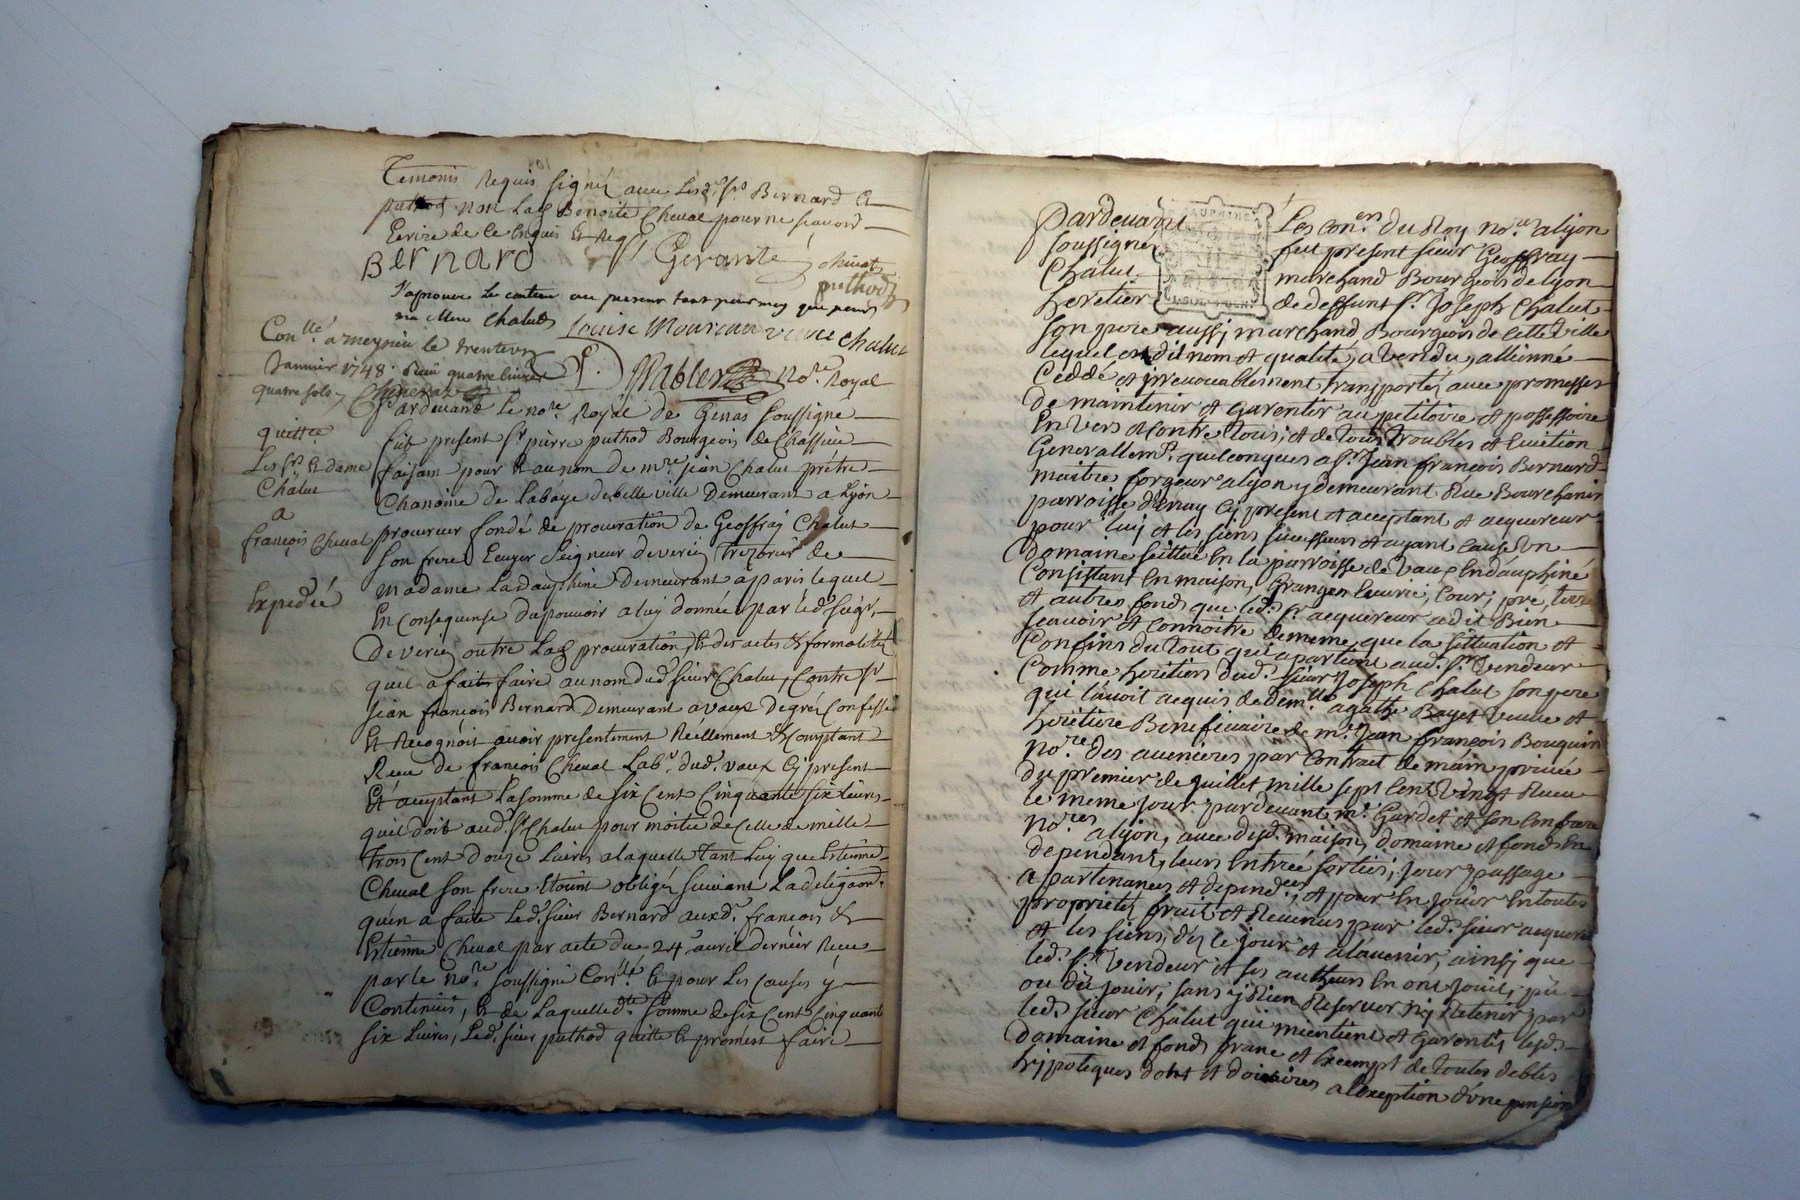 Temoins Requis signéz avec Lesd. Srs Bernard Et
puthod non Lad. Benoite Cheval pour ne sçavoir
Ecrire de ce Enquis Et Req.
BERNARD Gerante chivat
puthod
J'aprouve Le contenu au present tant pour moy que pour
ma Mere Chalut Louise Mourcan veuve chalut
Conllé a meyzieu le trente un
Janvier 1748. Reçu quatre livres
quatre sols
Nore. Royal
Pardevand Le nore. Royal de Genas soussigné
quitter
fut present Sr. pierre puthod Bourgeois de Chassieu
Les Sr. Et dame
Chalut
a
françois Cheval
Expediée
faisant pour Et au nom de mre. jean Chalut prêtre
Chanoine de Labaye debelleville Demeurant a Lyon
procureur fondé de procuration de Geoffray Chalut
son frere Ecuyer Seigneur deverin trezorier de
Madame Ladauphine Demeurant a paris lequel
En consequense dupouvoir a luy donnée par led. seigr.
De verin outre Lad. procuration Et des actes & formalitéz
quil a faits faire au nom dud. sieur Chalut, Contre Sr.
jean françois Bernard Demeurant a vaux De gré Confesse
Et Recognoit avoir presentement Réellement & Comptant
Reçu de françois Cheval Labr. dud. vaux Cy present
Et aceptant La somme de six Cent Cinquante six Livres
quil doit aud. Sr. Chalut pour moitié de Celle de mille
trois Cent douze Livres a laquelle tant Luy que Estienne
Cheval son frere Etoint obligés suivant La delégaon.
quen a faite Led. sieur Bernard auxd. françois &
Estienne Cheval par acte du 24e. avril dernier Reçu
par le nore. soussigné Conllé. Et pour Les causes y
Contenues, Et de Laquelle dte. somme de six Cent Cinquante
six Livres, Led. sieur puthod quitte Et promest faire
Pardevant Les Conen. du Roy nore. a lyon
DAUPHINE
soussignés fut present sieur Geoffray
Chalut marchand Bourgeois de lyon
heretier de deffunt Sr. Joseph Chalut
son pere aussi marchand Bourgeois de cette ville
lequel en dit nom et qualité, a vendu, allienné
Cedde et irrevocablement transportéz avec promesse
De maintenir et Garentir au petitoire et possessoire
Envers et contre tous; et de tous troubles et Euition
Generallemt. quelconques a Sr. Jean françois Bernard
maitre forgeur a lyon y demeurant Rue Bourchanin
parroisse d'Enay Cy present et acceptant et acquereur
pour luy et les siens successeurs et ayant cause un
Domaine scittué En la parroisse de Vaux En dauphiné
Consistant En maison, Grange, Ecurie, Cour, pré, terre
et autres fonds que led. Sr. acquereur a dit Bien
sçavoir et connoitre dememe que la scittuation et
Confins du tout qui apartient aud. Sr. Vendeur
Comme heritier dud. sieur Joseph Chalut son pere
qui l'avoit acquis de Demlle agathe Bayet veuve et
heretiere Beneficiaire de mr. Jean françois Bouquin
nore. des avenieres par contract de main privée
du premier de Juillet mille sept Cent Vingt Reçu
le meme jour pardevant mr. Gardet et son confrere
nores. a lyon, avec desd. maison, domaine et fonds En
dependant, leurs Entrée sorties, jour passage
apartenances et dependces., et pour En jouir En toutes
proprietéz fruit et Revenus par led. sieur acquereur
et les siens, déz le jour et alavenir, ainsi que
led. Sr. Vendeur et ses autheurs En ont jouit, pu
ou dû jouir, sans y Rien Reserver ny Retenir par
led. sieur Chalut qui mientient et Garentit lesd.
domaine et fonds franc et Exempt de toutes debtes
hipoteques dots et doüaires a l'exeption d'une pension